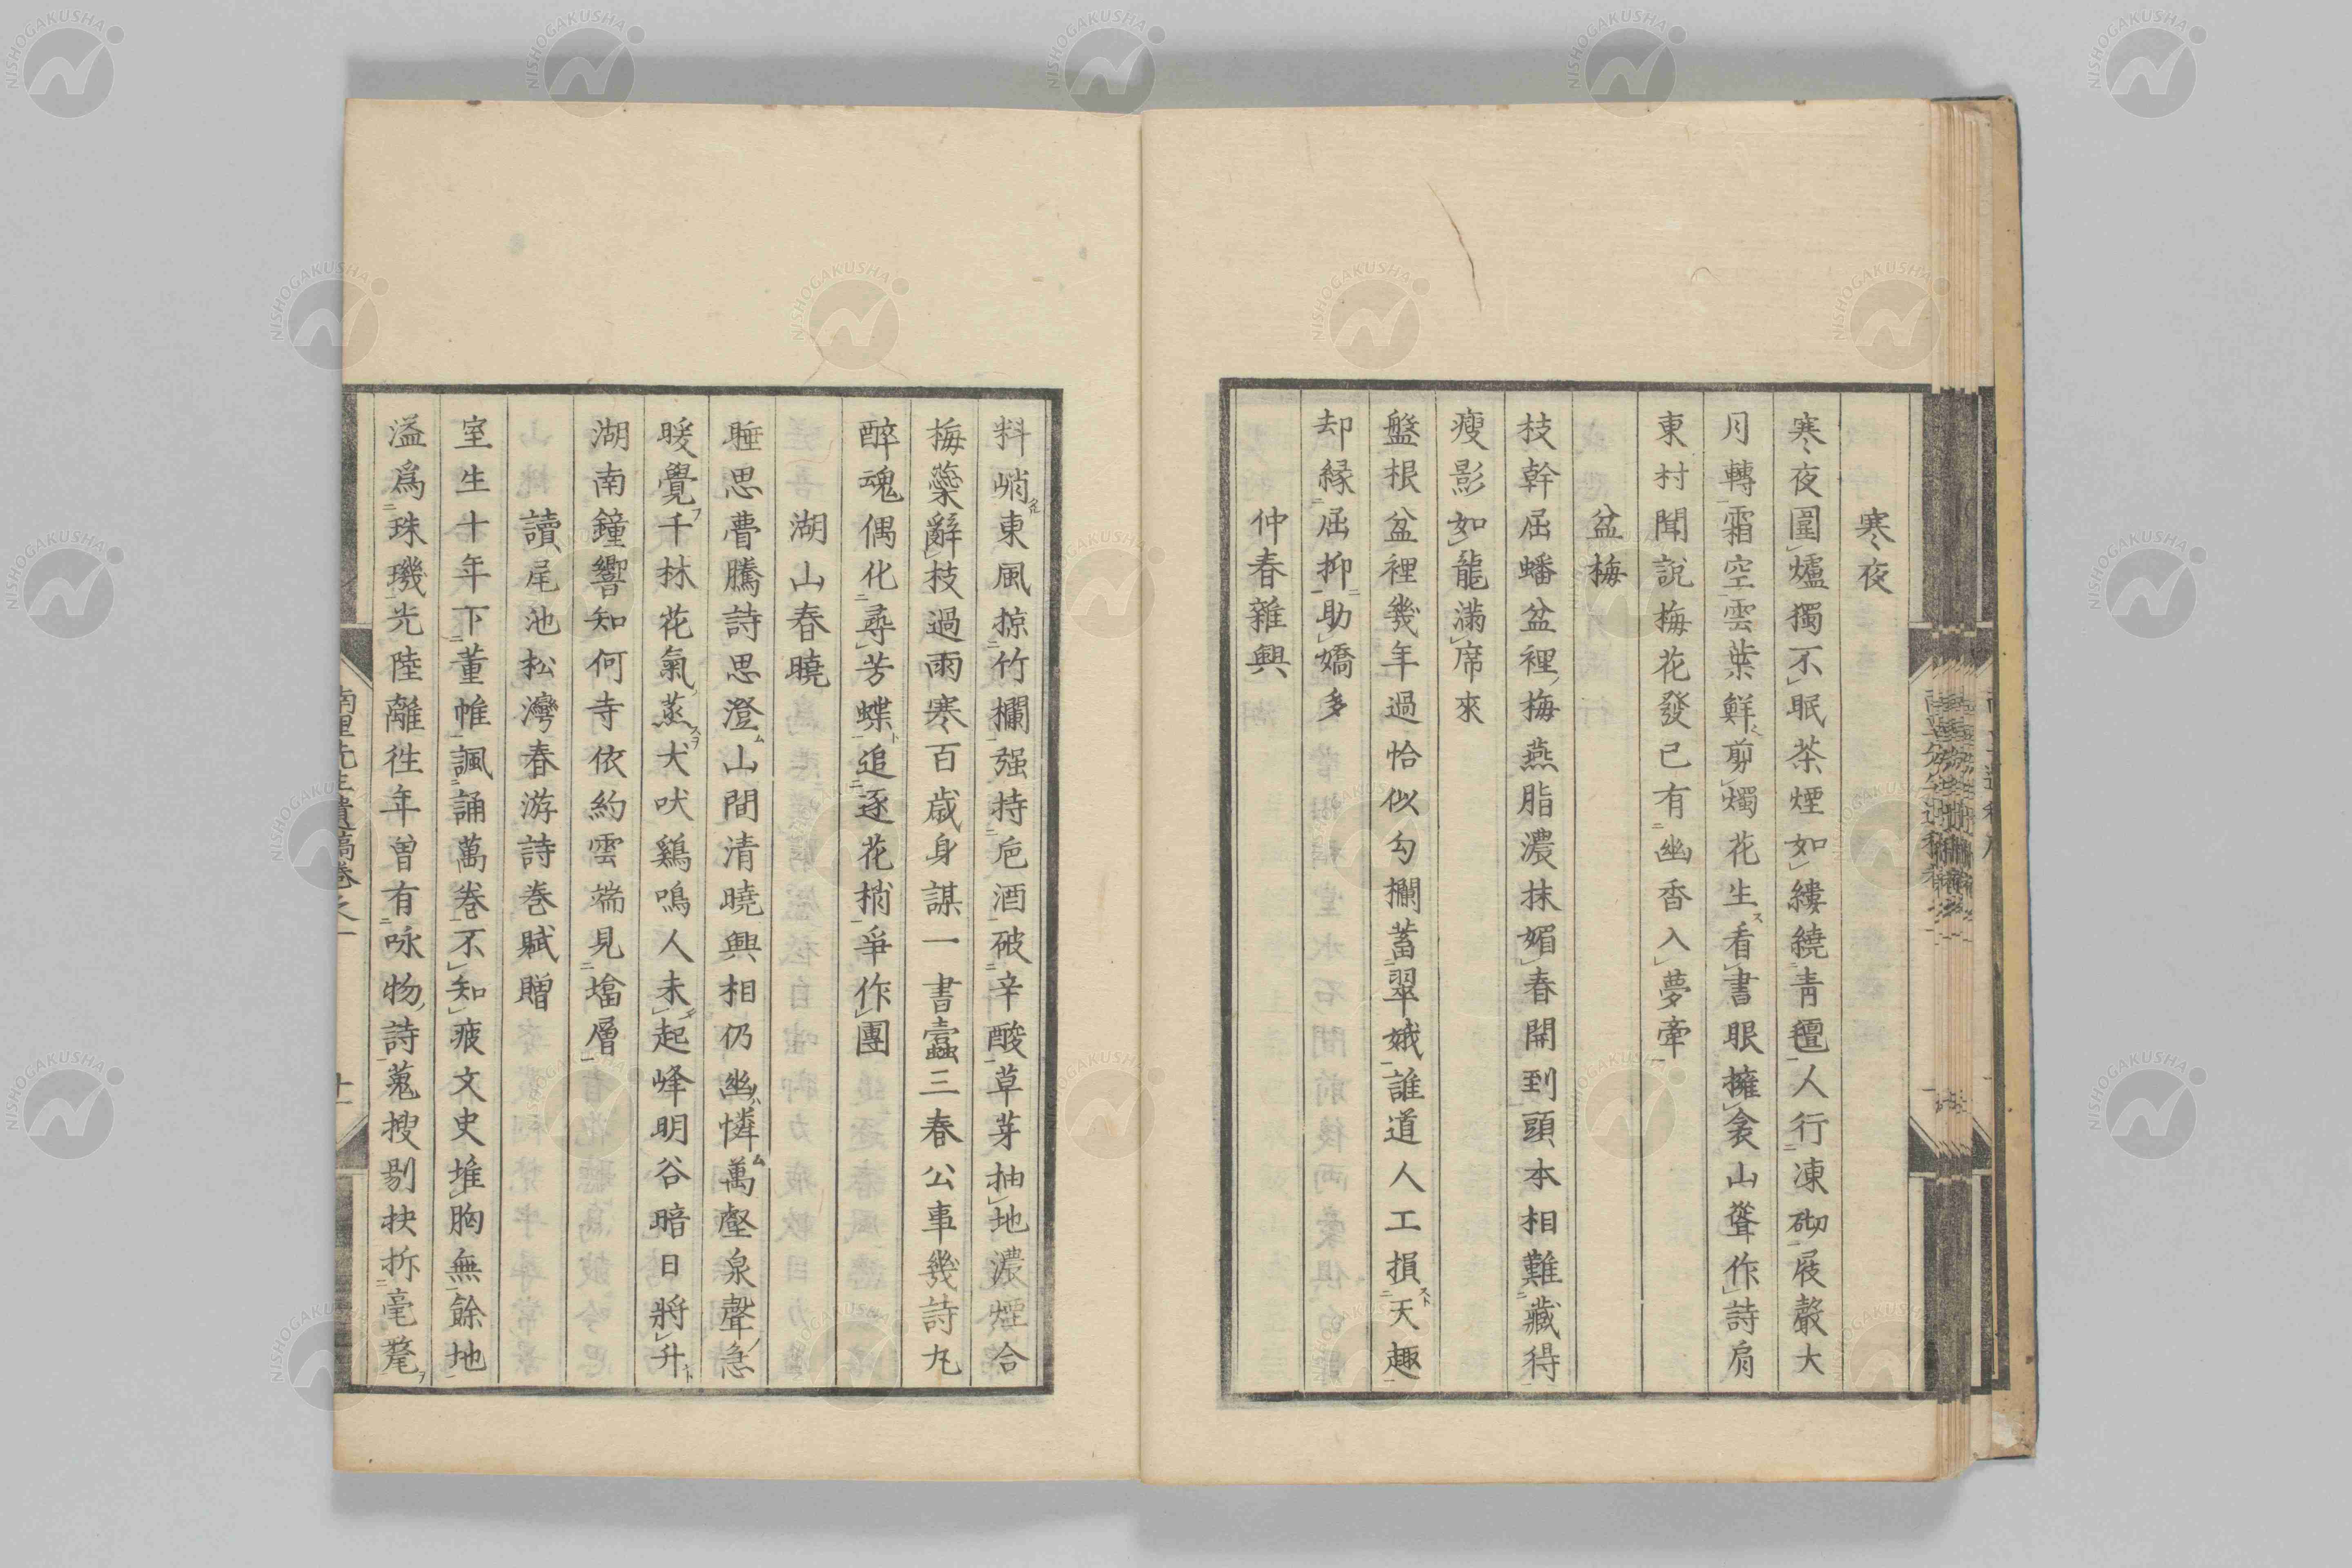 寒夜
寒夜圍爐獨不眠茶煙如縷繞靑氈人行凍砌屐聲大
月轉霜空雲葉鮮剪燭花生看書眼擁衾山聳作詩肩
東村聞說梅花發已有幽香入夢牽
盆梅
枝幹屈蟠盆裡梅燕脂濃抹媚春開到頭本相難藏得
瘦影如龍滿席來
盤根盆裡幾年過恰似勾欄蓄翠娥誰道人工損天趣
却緣屈抑助嬌多
仲春雜興
料峭東風掠竹欄强持卮酒破辛酸草芽抽地濃煙合
梅蘂辭枝過雨寒百歲身謀一書蠹三春公事幾詩丸
醉魂偶化尋芳蝶追逐花梢爭作團
湖山春曉
睡思瞢騰詩思澄山間清曉興相仍幽憐萬壑泉聲急
暖覺千林花氣蒸犬吠鷄鳴人未起峰明谷暗日將升
湖南鐘響知何寺依約雲端見塔層
讀尾池松灣春游詩卷賦贈
室生十年下董帷諷誦萬卷不知疲文史堆胸無餘地
溢爲珠璣光陸離徃年曾有咏物詩蒐搜剔抉拆毫氂
南里先生遺稿卷之一
十一
NISHOGAKUSHA